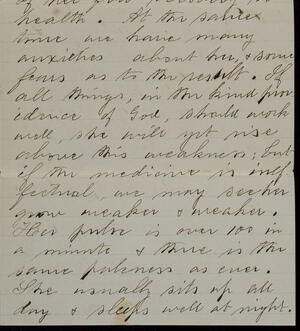 of her
health. At the same
time we have many
anxieties about her, & some
fears as to the result. If
all things, in the kind prov
idence of God, should work
well, she will yet rise
above this weakness; but
if the medicine is inef
fectual, we may see her
grow weaker & weaker.
Her pulse is over 100 in
a minute & there is the
same paleness as ever.
She usually sits up all
day & sleeps well at night.